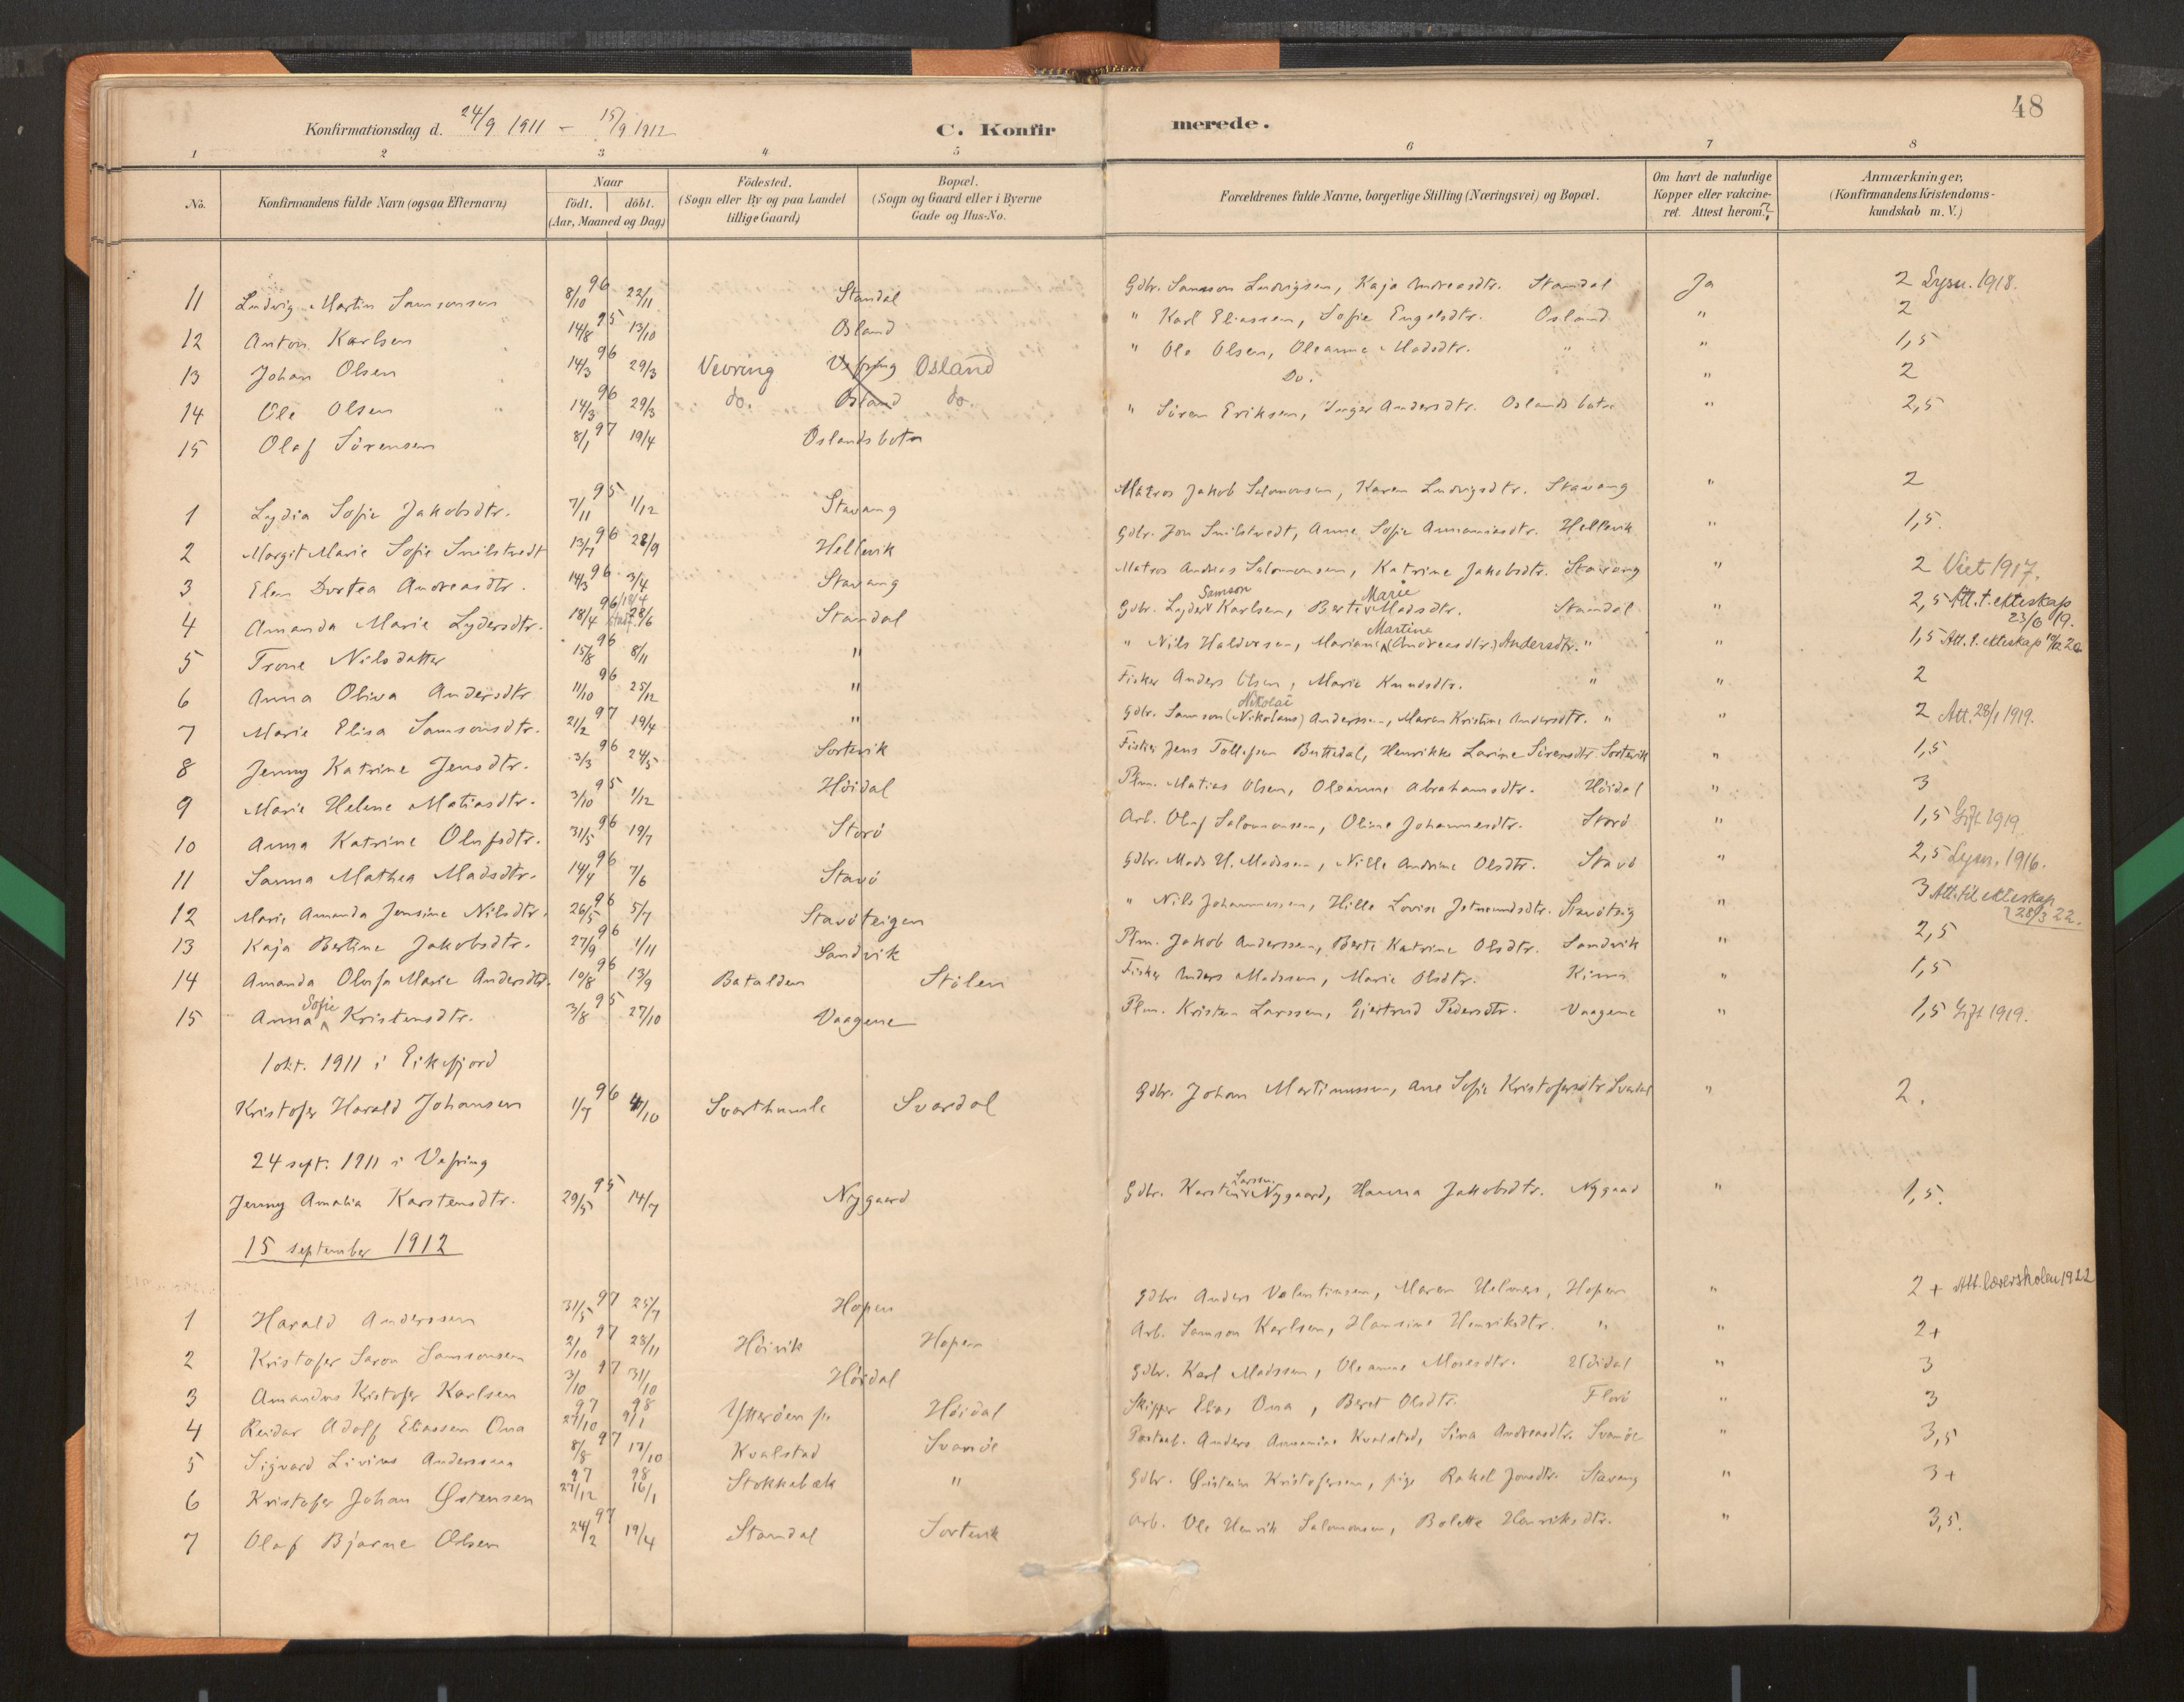 48
Konfirmationsdag d. 24/9 1911 – 15/9 1912 C. Konfirmerede.
1 2 3 4 5 6 7 8
No. Konfirmandens fulde Navn (ogsaa Efternavn) Naar födt. döbt. (Aar, Maaned og Dag) Födested. (Sogn eller By og paa Landet tillige Gaard) Bopæl. (Sogn og Gaard eller i Byerne Gade og Hus-No. Forældrenes fulde Navne, borgerlige Stilling (Næringsvei) og Bopæl. Om havt de naturlige Kopper eller vakcineret. Attest herom? Anmærkninger, (Konfirmandens Kristendomskundskab m. V.)
11 Ludvig Martin Samsonsen 8/10 96 22/11 Standal Gdbr. Samson Ludvigsen, Kaja Andreasdtr. Standal Ja 2 Lysn. 1918.
12 Anton Karlsen 14/8 95 13/10 Osland " Karl Eliassen, Sofie Engelsdtr. Osland " 2
13 Johan Olsen 14/3 96 29/3 Vevring Vefring Osland " Ole Olsen, Oleanne Madsdtr. " " 1,5
14 Ole Olsen 14/3 96 29/3 do. Osland do. Do. " 2
15 Olaf Sörensen 8/1 97 19/4 Oslandsbotn " Sören Eriksen, Inger Andersdtr. Oslandsbotn " 2,5
1 Lydia Sofie Jakobsdtr. 7/11 95 1/12 Stavang Matros Jakob Salomonsen, Karen Ludvigsdtr. Stavang " 2
2 Margit Marie Sofie Snilstvedt 13/7 96 28/9 Hellevik Gdbr. Jon Snilstvedt, Anne Sofie Annaniasdtr. Hellevik " 1,5.
3 Elen Dortea Andreasdtr. 14/3 96 3/4 Stavang Matros Andreas Salomonsen, Katrine Jakobsdtr. Stavang " 2 Viet 1917.
4 Amanda Marie Lydersdtr. 18/4 96 28/6 Standal Gdbr. Lyder Samson Karlsen, Berte Marie Madsdtr. Standal " 2,5 Att. t. ekteskap 23/6 19.
5 Trone Nilsdatter 15/8 96 8/11 " " Nils Haldorsen, Mariane Martine (Andreasdtr.) Andersdtr. " " 1,5 Att. t. ekteskap
6 Anna Oliva Andersdtr 11/10 96 25/12 " Fisker Anders Olsen, Marie Knudsdtr. " " 2
7 Marie Elisa Samsonsdtr. 21/2 97 19/4 " Gdbr. Samson (Nikolaus) Nikolai Anderssen, Maren Kristine Andersdtr. " " 2 Att. 28/1 1919.
8 Jenny Katrine Jensdtr. 3/3 96 24/5 Sortevik Fisker Jens Tollefsen Buttedal, Henrikke Larine Sörensdtr. Sortevik " 1,5
9 Marie Helene Matiasdtr. 3/10 95 1/12 Höidal Plm. Matias Olsen, Oleanne Abrahamsdtr. Höidal " 3
10 Anna Katrine Olafsdtr. 31/5 96 19/7 Storö Arb. Olaf Salomonsen, Oline Johannesdtr. Storö " 1,5 Gift 1919
11 Sanna Mathea Madsdtr. 14/4 96 7/6 Stavö Gdbr. Mads H. Madssen, Nille Andrine Olsdtr. Stavö " 2,5 Lysn. 1916.
12 Marie Amanda Jensine Nilsdtr. 26/5 96 5/7 Stavöteigen " Nils Johannessen, Hille Lovise Jetmundsdtr. Stavöteig " 3 Att. til ekteskap 28/3 22.
13 Kaja Bertine Jakobsdtr. 27/9 96 1/11 Sandvik Plm. Jakob Anderssen, Berte Katrine Olsdtr. Sandvik " 2,5
14 Amanda Olufa Marie Andersdtr. 10/8 96 13/9 Batalden Stölen Fisker Anders Madssen, Marie Olsdtr. Kinn " 1,5
15 Anna Sofie Kristensdtr. 3/8 95 27/10 Vaagene Plm. Kristen Larssen, Gjertrud Pedersdtr. Vaagene " 1,5 Gift 1919.
1 okt. 1911 i Eikefjord
Kristofer Harald Johansen 1/7 96 4/10 Svarthumle Svardal Gdbr. Johan Martinussen, Ane Sofie Kristofersdtr. Svardal " 2.
24 sept. 1911 i Vefring
Jenny Amalia Karstensdtr. 29/5 95 14/7 Nygaard Gdbr. Karsten Larssen Nygaard, Hanna Jakobsdtr. Nygaard " 1,5.
15 september 1912
1 Harald Anderssen 31/5 97 25/7 Hopen Gdbr Anders Valentinsen, Maren Helmers, Hopen " 2+ Att. lærerskolen 1922
2 Kristofer Saron Samsonsen 2/10 97 28/11 Höivik Hopen Arb. Samson Karlsen, Hansine Henriksdtr. " " 2+
3 Amandus Kristofer Karlsen 3/10 97 31/10 Höidal Gdbr. Karl Madssen, Oleanne Mosesdtr. Höidal " 3
4 Reidar Adolf Eliassen Ona 27/10 97 9/1 98 Ytteröen Höidal Skipper Elias Ona, Beret Olsdtr. Florö " 3
5 Sigvard Livius Anderssen 8/8 97 17/10 Kvalstad Svanöe Anders Annanias Kvalstad, Sina Andreasdtr. Svanöe " 3,5
6 Kristofer Johan Østensen 27/12 97 16/1 98 Stokkebæk " Gdbr. Øistein Kristofersen, pige Rakel Jonsdtr. Stavang " 3+
7 Olaf Bjarne Olsen 24/2 97 19/4 Standal Sortevik Arb. Ole Henrik Salomonsen, Bolette Henriksdtr. " 3,5.